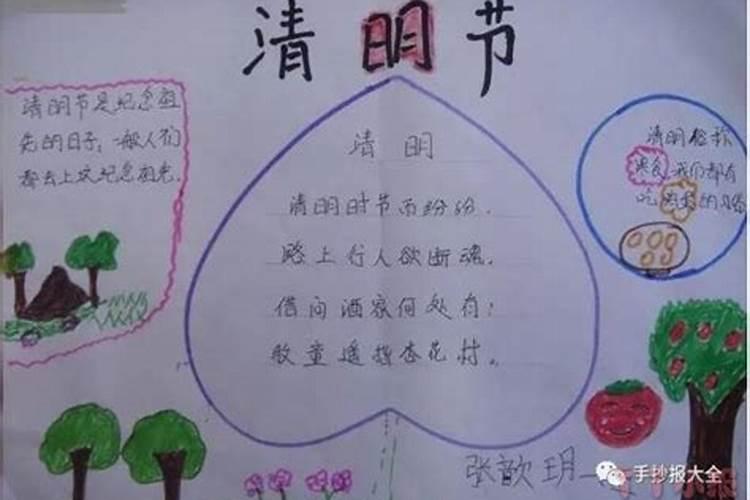 清明节
清明节是纪念祖
先的日子,一般人们
都去上坟纪念祖先.
清 明
清明时节雨纷纷.
路上行人欲断魂.
借问酒家何处有:
牧童遥指杏花村。
清明俗称
寒食.我们都有
吃 的习俗
张歆玥
手抄报大全